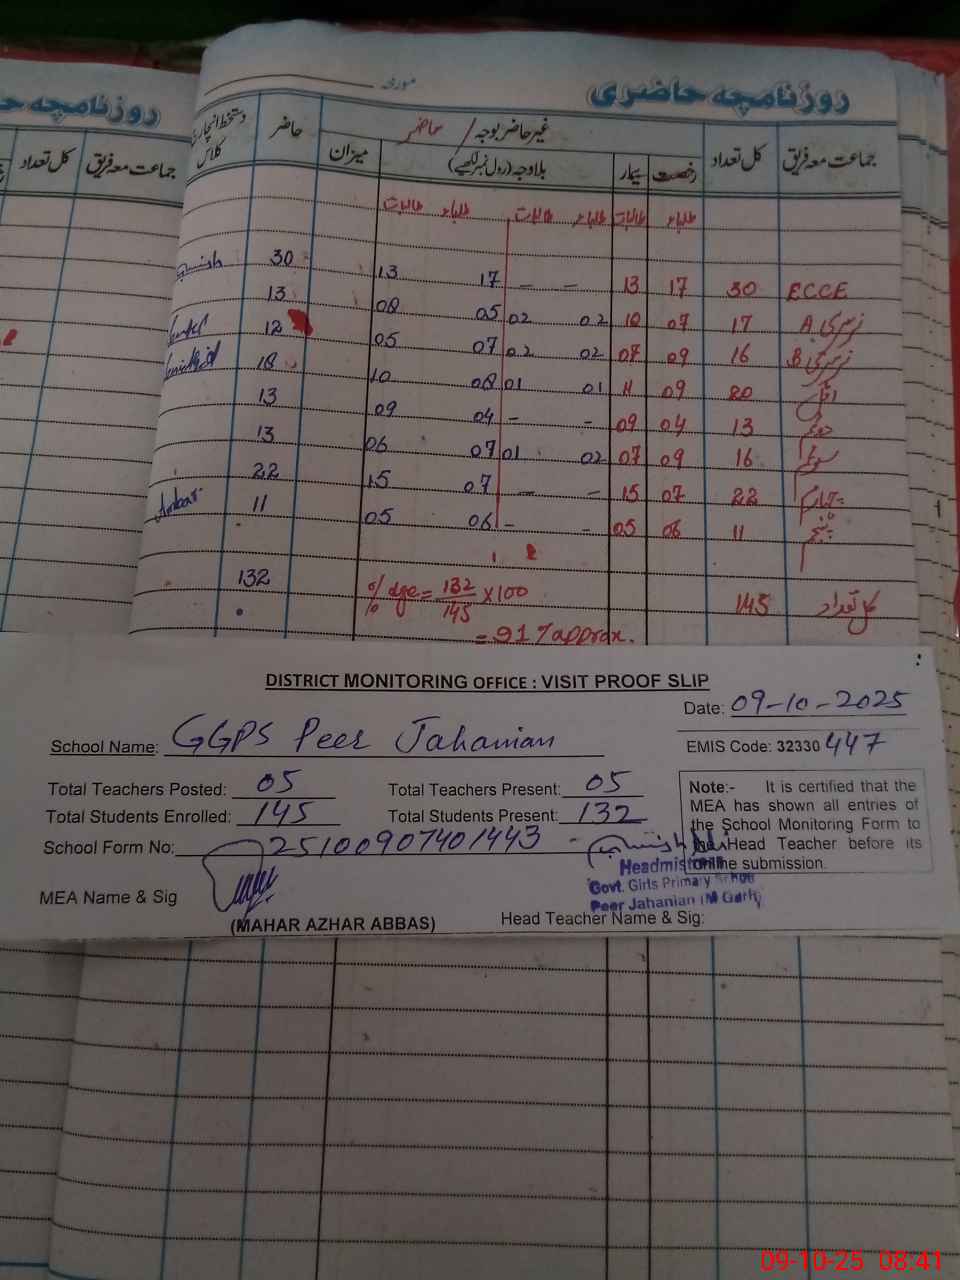 روزنامچہ حاضری
مورخہ
روزنامچہ حا
جماعت معہ فریق کل تعداد رخصت بیمار غیر حاضر بوجہ / حاضر بلاوجہ (رول نمبر لکھیے) میزان حاضر دستخط انچارج کلاس
جماعت معہ فریق کل تعداد
طلباء طالبات طلباء طالبات طلباء طالبات
ECCE 30 17 13 – – 17 13 30
نرسری A 17 07 10 02 02 05 08 13
نرسری B 16 09 07 02 02 07 05 12
اول 20 09 11 01 01 08 10 18
دوئم 13 04 09 - - 04 09 13
سوئم 16 09 07 02 01 07 06 13
چہارم 22 07 15 – – 07 15 22
پنجم 11 06 05 - - 06 05 11 Ambar
کل تعداد 145 132
% age = 132/145 ×100
= 91 % approx.
DISTRICT MONITORING OFFICE : VISIT PROOF SLIP
Date: 09-10-2025
School Name: GGPS Peer Jahanian
EMIS Code: 32330447
Total Teachers Posted: 05 Total Teachers Present: 05
Total Students Enrolled: 145 Total Students Present: 132
School Form No: 25100907401443
Note:- It is certified that the
MEA has shown all entries of
the School Monitoring Form to
the Head Teacher before its
online submission.
Headmistress
Govt. Girls Primary School
Peer Jahanian (M Garh)
MEA Name & Sig
(MAHAR AZHAR ABBAS)
Head Teacher Name & Sig:
09-10-25 08:41